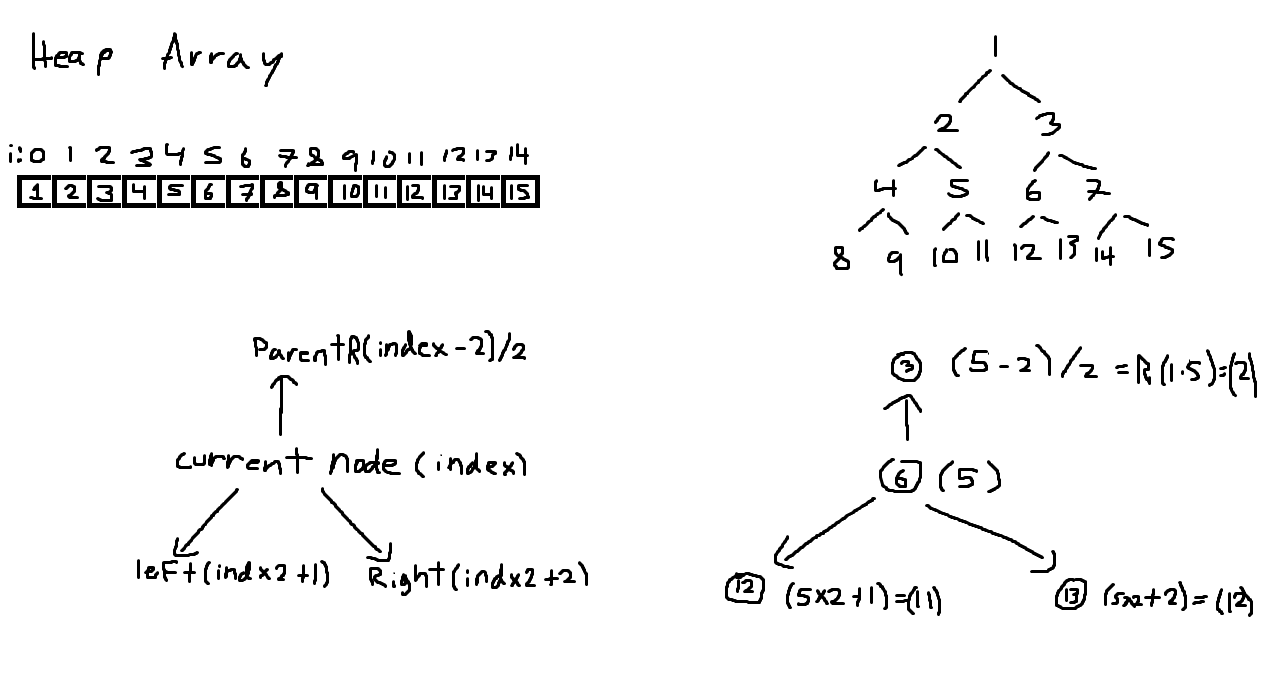 Heap Array
i: 0 1 2 3 4 5 6 7 8 9 10 11 12 13 14
1 2 3 4 5 6 7 8 9 10 11 12 13 14 15
1
2 3
4 5 6 7
8 9 10 11 12 13 14 15
ParentR(index-2)/2
current node (index)
leFt(indx2+1) Right(indx2+2)
3 (5-2)/2 =R(1.5)=(2)
6 (5)
12 (5x2+1)=(11) 13 (5x2+2)=(12)